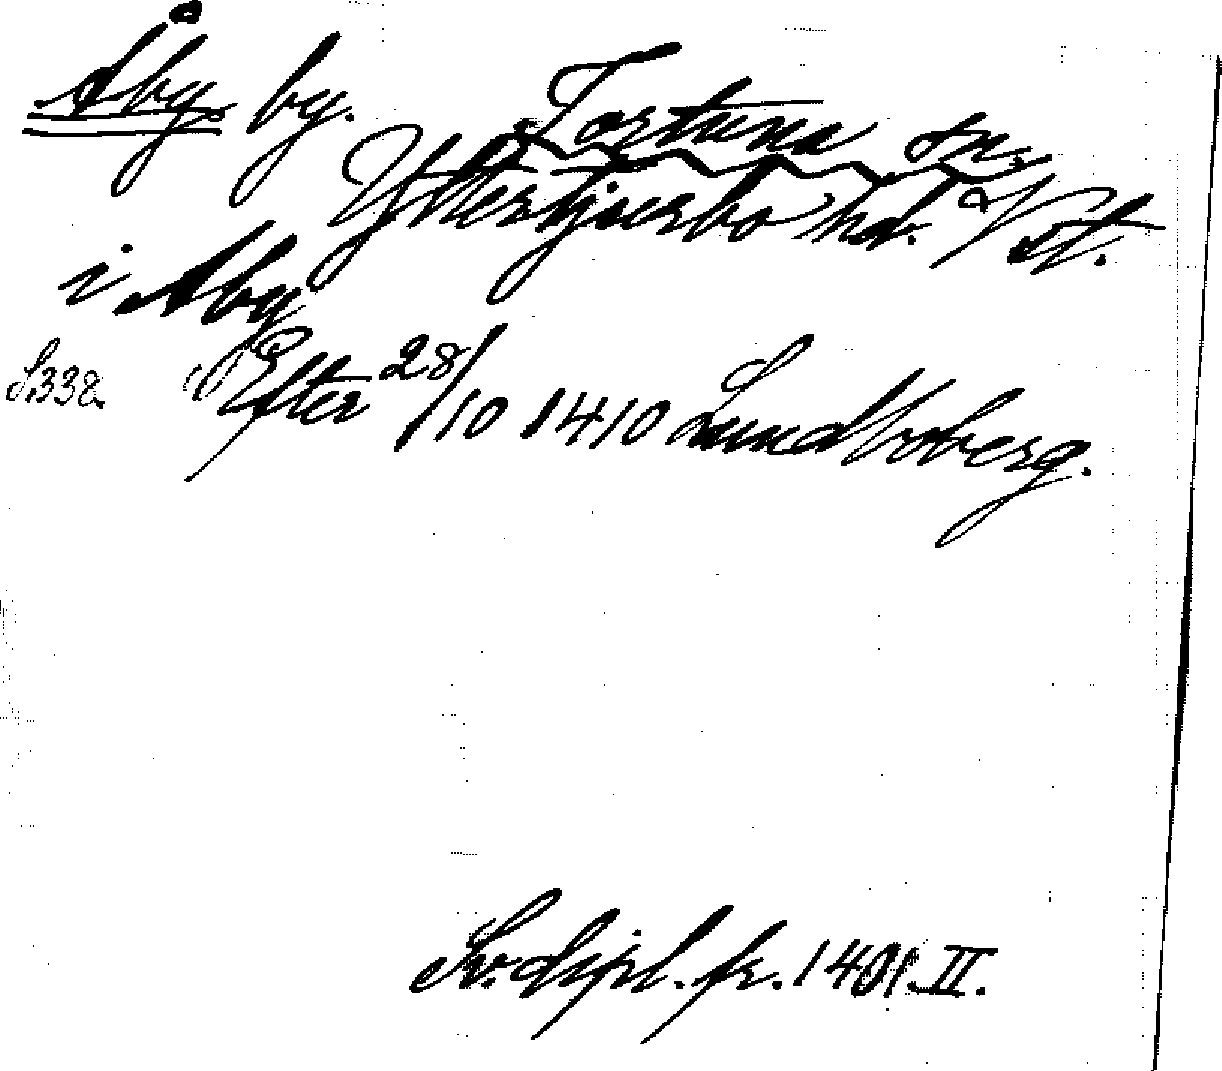 Åby by.
Tortuna sn,
Yttertjurbo hd. Vstm.
i Aby
S. 338. Efter 28/10 1410 Lundboberg.
Sv. dipl. fr. 1401. II.